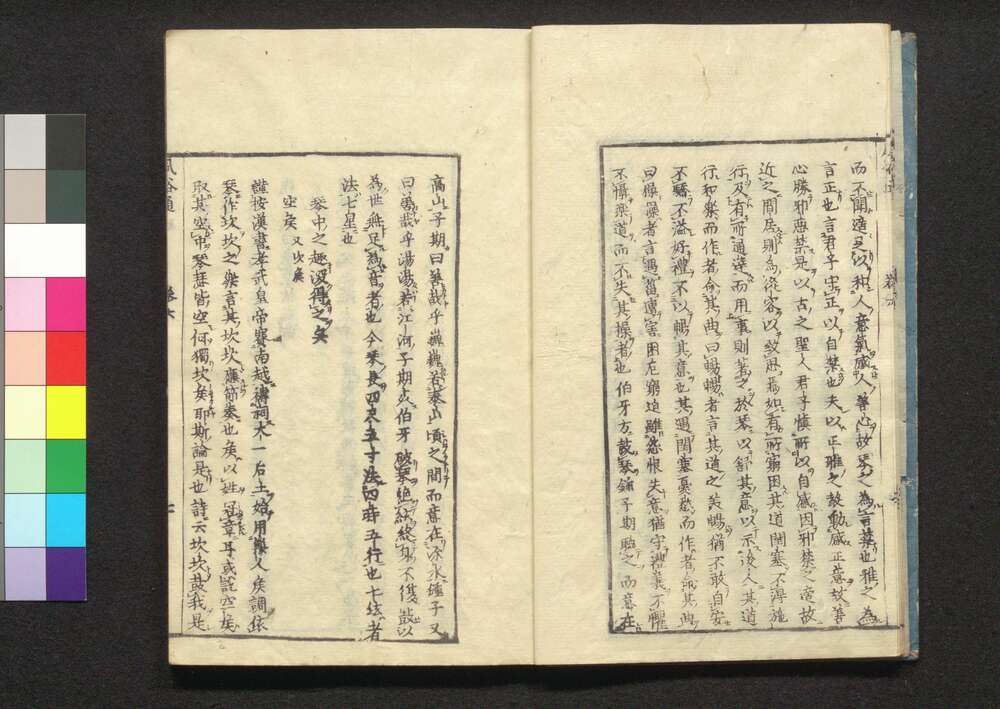 而不閒適足以和人意氣感人善心故琴之為言禁也雅之為
言正也言君子守正以自禁也夫以正雅之故動感正意故善
心勝邪惡禁是以古之聖人君子慎所以自感因邪禁之適故
近之間居則為從容以致思焉如有所窮困其道閉塞不得施
行及有所通達而用事則著之於琴以舒其意以示後人其道
行和樂而作者命其曲曰暢暢者言其道之美暢猶不敢自安
不驕不溢好禮不以暢其意也其遇閉塞憂愁而作者命其曲
曰操操者言遇菑遭害困厄窮迫雖怨恨失意猶守禮義不懼
不懾樂道而不失其操者也伯牙方鼓琴鍾子期聽之而意在
高山子期曰善哉乎巍巍若泰山頃之間而意在流水鍾子又
曰善哉乎湯湯若江河子期死伯牙破琴絕絃終身不復鼓以
為世無足為音者也今琴長四尺五寸法四時五行也七絃者
法七星也
琴中之趣深得之矣
空矦 又坎矦
謹按漢書孝武皇帝賽南越禱祠太一后土始用樂人矦調依
琴作坎坎之樂言其坎坎應節奏也矦以姓冠章耳或說空矦
取其空中琴瑟皆空何獨坎矦耶斯論是也詩云坎坎鼓我是
風俗通
卷六
七